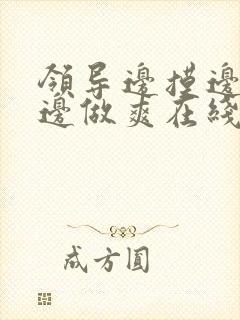 領导邊摸邊
邊做爽在綫
成方圓